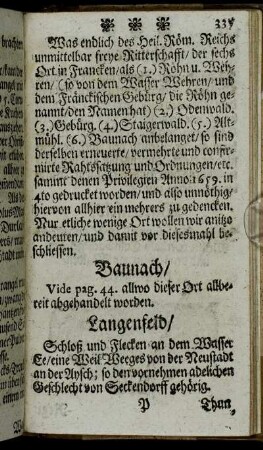 335
Was endlich des Heil. Röm. Reichs
unmittelbar freye Ritterschafft/ der sechs
Ort in Francken/ als (1.) Rohn u. Weh-
ren/ (so von dem Wasser Wehren/ und
dem Fränckischen Gebürg/ die Röhn ge-
nannt/ den Namen hat) (2.) Odenwald.
(3.) Gebürg. (4.) Staigerwald. (5.) Alt-
mühl. (6.) Baunach anbelanget/ so sind
derselben erneuerte/ vermehrte und confir-
mirte Rahtssatzung und Ordnungen/ etc.
sammt denen Privilegien Anno 1659. in
4to gedrucket worden/ und also unnöthig/
hiervon allhier ein mehrers zu gedencken.
Nur etliche wenige Ort wollen wir anitzo
andeuten/ und damit vor diesesmahl be-
schliessen.
Baunach/
Vide pag. 44. allwo dieser Ort allbe-
reit abgehandelt worden.
Langenfeld/
Schloß und Flecken an dem Wasser
Ee/ eine Weil Weeges von der Neustadt
an der Aysch; so den vornehmen adelichen
Geschlecht von Seckendorff gehörig.
P Than/